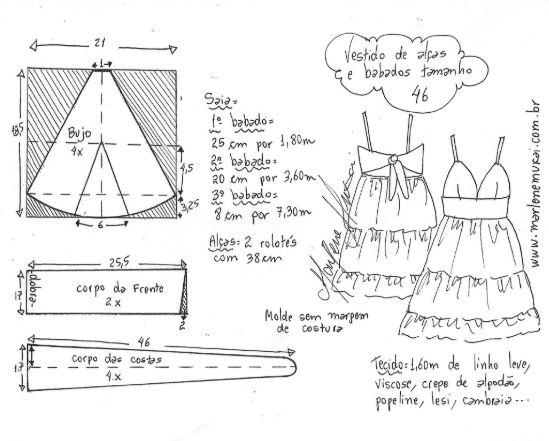 Vestido de alças
e babados tamanho
46
21
1
18,5
Bujo
4x
4,5
3,25
6
Saia=
1º babado=
25 cm por 1,80m
2º babado=
20 cm por 3,60m
3º babado=
8 cm por 7,30m
Alças: 2 rolotês
com 38cm
25,5
17
dobra
corpo da frente
2x
2
46
17
corpo das costas
4x
Molde sem margem
de costura
Marlene Mukai
Tecido=1,60m de linho leve,
viscose, crepe de algodão,
popeline, lesi, cambraia...
www.marlenemukai.com.br